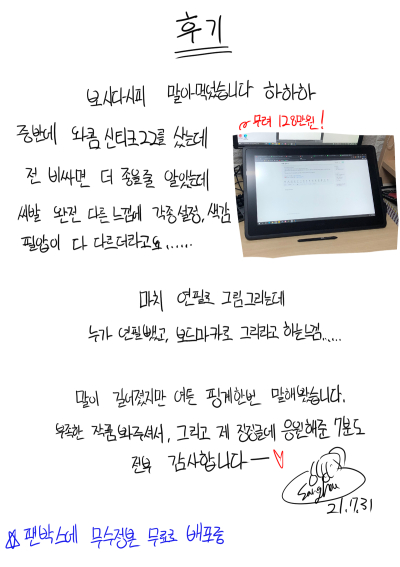 후기
보시다시피 말아먹었습니다 하하하
무려 128만원!
중반에 와콤 신티크22를 샀는데
전 비싸면 더 좋을줄 알았는데
씨발 완전 다른느낌에 각종설정, 색감
필압이 다 다르더라고요......
마치 연필로 그림그리는데
누가 연필뺏고, 보드마카로 그리라고 하는느낌.....
말이 길어졌지만 여튼 핑계한번 말해봤습니다.
부족한 작품봐주셔서, 그리고 제 징징글에 응원해준 7분도
전부 감사합니다ー♥
21.7.31
팬박스에 무수정본 무료로 배포중